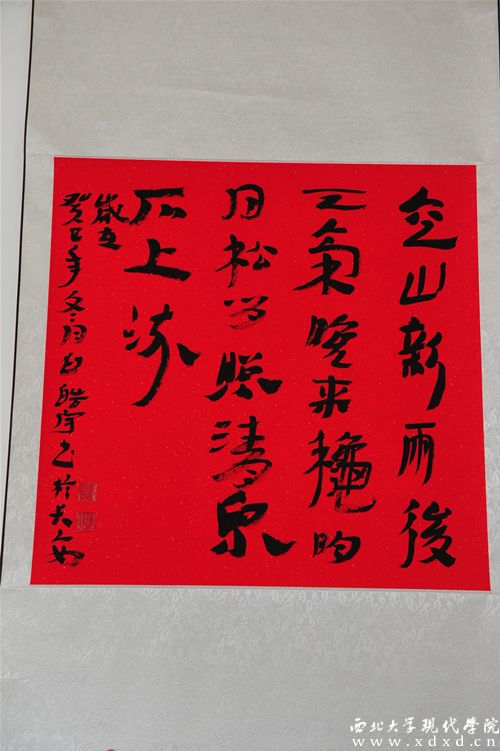 空山新雨後
天氣晚来龝明
月松间照清泉
石上流
歲在
癸巳年冬月白皓宇书於长安
西北大学现代學院
www.xdxd.cn